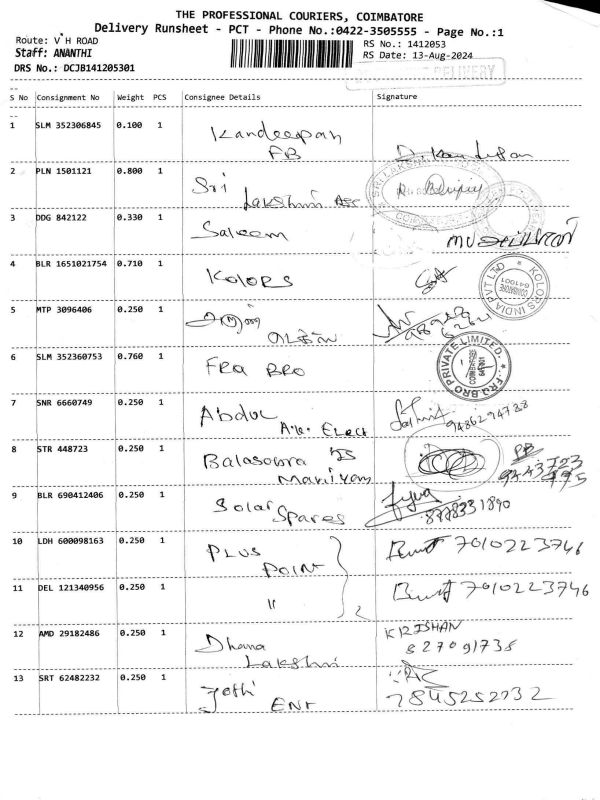 THE PROFESSIONAL COURIERS, COIMBATORE
Delivery Runsheet - PCT - Phone No.:0422-3505555 - Page No.:1
Route: V H ROAD
RS No.: 1412053
Staff: ANANTHI
RS Date: 13-Aug-2024
DRS No.: DCJB141205301
DELIVERY
S No Consignment No Weight PCS Consignee Details Signature
1 SLM 352306845 0.100 1 Kandeepan
FB
2 PLN 1501121 0.800 1 Sri
Lakshmi
3 DDG 842122 0.330 1 Saleem
4 BLR 1651021754 0.710 1 KOLORS
KOLORS INDIA PVT LTD
5 MTP 3096406 0.250 1
6 SLM 352360753 0.760 1 FRA BRO
FRQ.BRO PRIVATE LIMITED.
7 SNR 6660749 0.250 1 Abdul
Elect
9486294788
8 STR 448723 0.250 1 Balasubra
Maniyam
9 BLR 690412406 0.250 1 Solar
Spares
8778331890
10 LDH 600098163 0.250 1 PLUS
POINT
7010223746
11 DEL 121340956 0.250 1 "
7010223746
12 AMD 29182486 0.250 1 Dhana
Lakshmi
KRISHAN
827091735
13 SRT 62482232 0.250 1 Jothi
ENT
7845252232